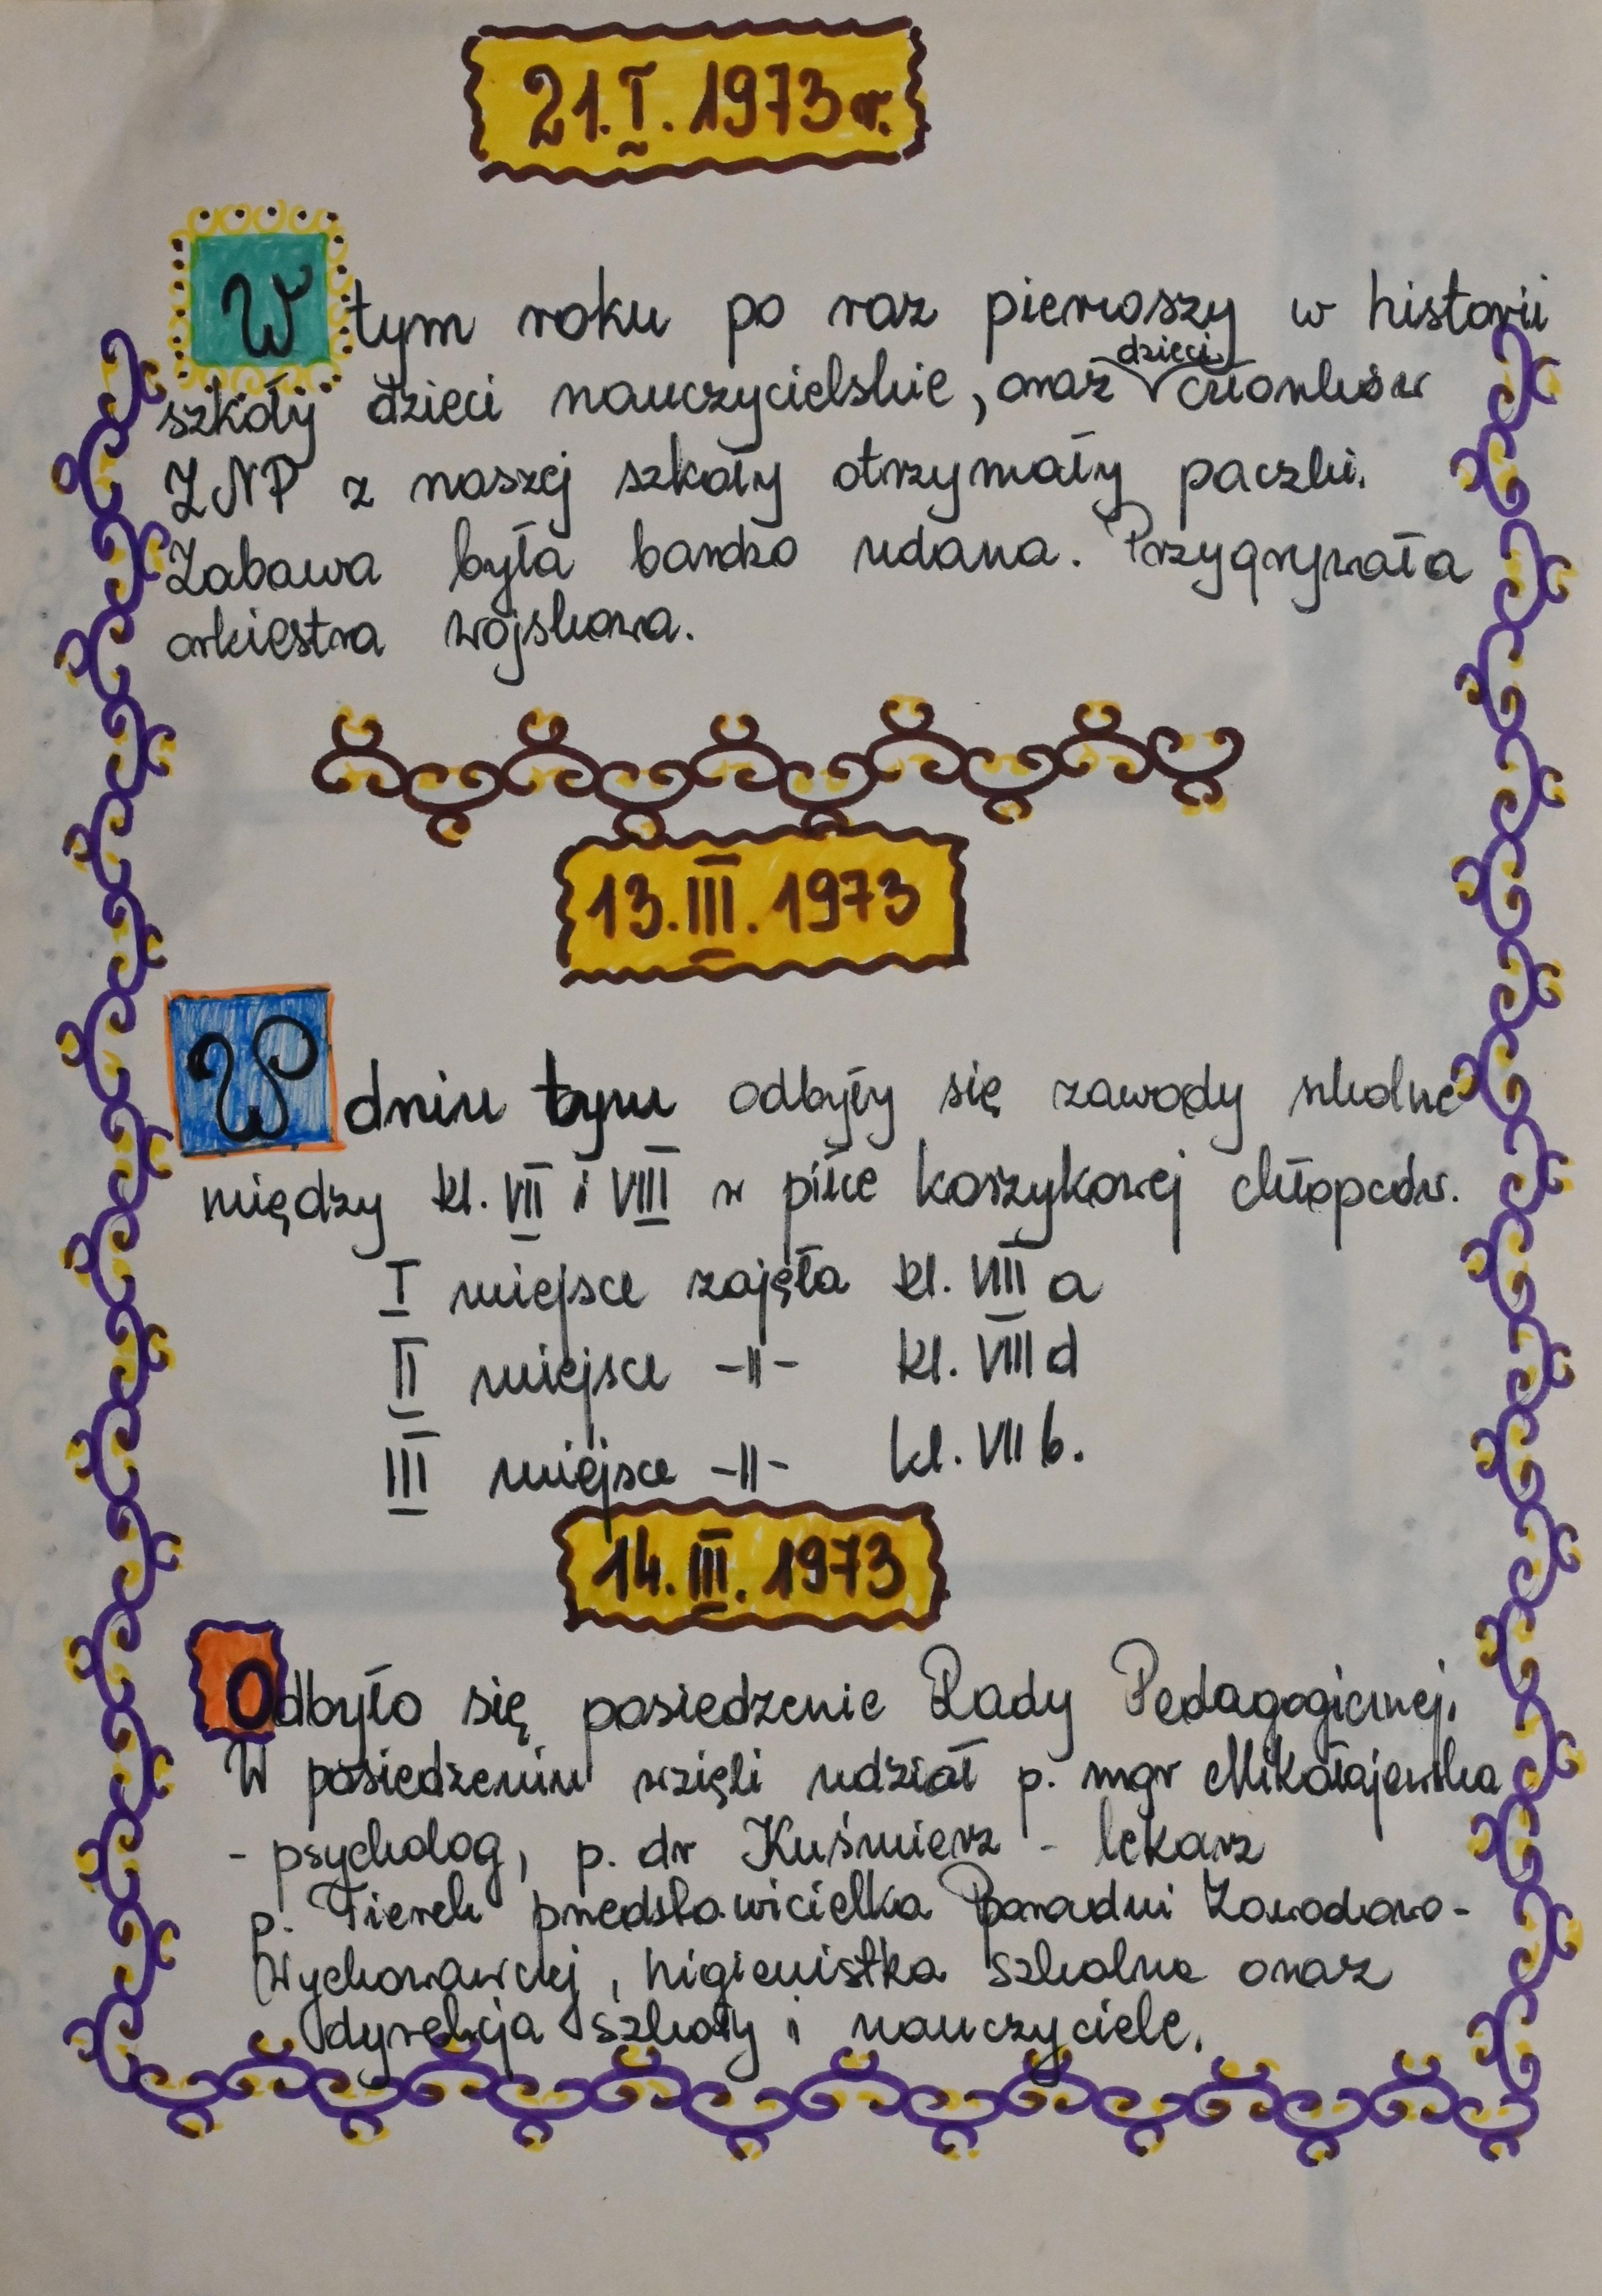 21.I.1973r.
W tym roku po raz pierwszy w historii
szkoły dzieci nauczycielskie, oraz dzieci członków
ZNP z naszej szkoły otrzymały paczki.
Zabawa była bardzo udana. Przygrywała
orkiestra wojskowa.
13.III.1973
W dniu tym odbyły się zawody szkolne
między kl. VII i VIII w piłce koszykowej chłopców.
I miejsce zajęła kl. VIII a
II miejsce -II- kl. VIII d
III miejsce -II- kl. VII b.
14.III.1973
Odbyło się posiedzenie Rady Pedagogicznej.
W posiedzeniu wzięli udział p. mgr Mikołajewska
- psycholog, p. dr Kuśmierz - lekarz
p. Fierek przedstawicielka Poradni Zawodowo-
Wychowawczej, higienistka szkolna oraz
dyrekcja szkoły i nauczyciele.